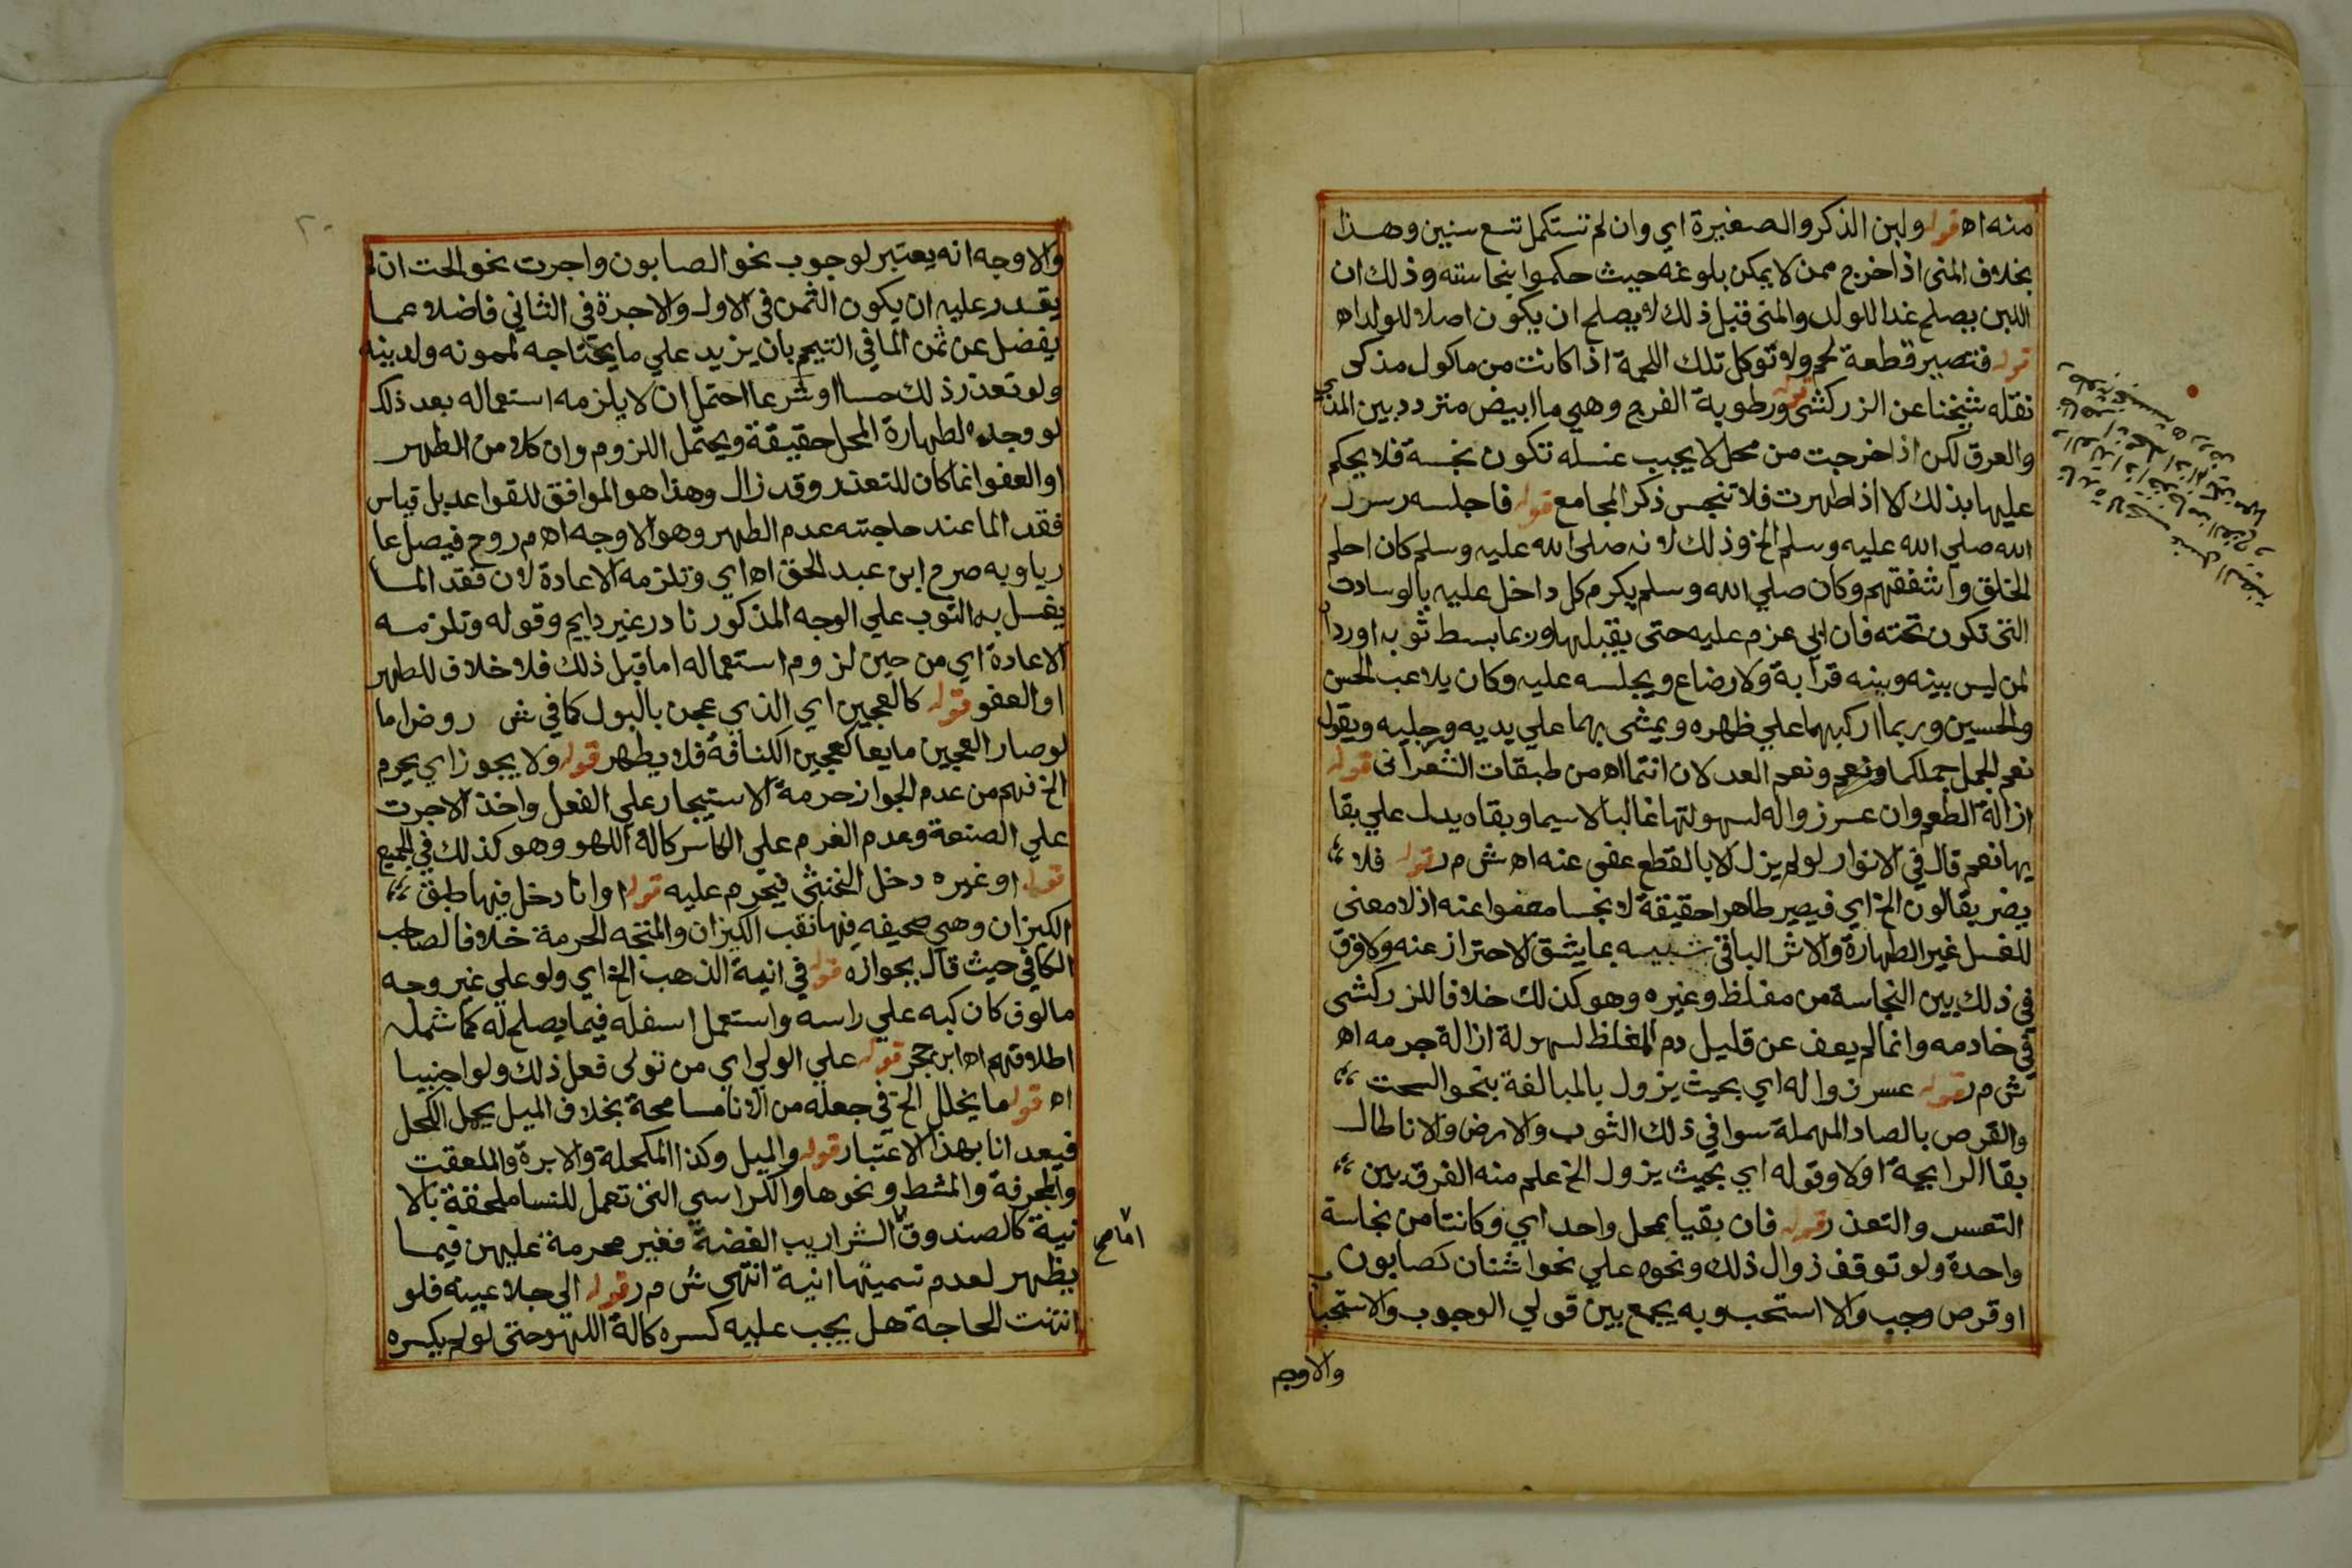 منه اه قوله ولبن الذكر والصغيرة اي وان لم تستكمل تسع سنين وهذا
بخلاف المنى اذا خرج ممن لا يمكن بلوغه حيث حكموا بنجاسته وذلك ان
اللبن يصلح غدا للولد والمنى قبل ذلك لا يصلح ان يكون اصلا للولد اه
قوله فتصير قطعة لحم ولا توكل تلك اللحمة اذا كانت من ماكول مذكى
نقله شيخنا عن الزركشى قوله ورطوبة الفرج وهي ما ابيض متردد بين المذي
والعرق لكن اذا خرجت من محل لا يجب غسله تكون نجسة فلا يحكم
عليها بذلك الا اذا طهرت فلا تنجس ذكر المجامع قوله فاجلسه رسول
الله صلي الله عليه وسلم الخ وذلك لانه صلى الله عليه وسلم كان احلم
الخلق واشفقهم وكان صلي الله وسلم يكرم كل داخل عليه بالوسادت
التى تكون تحته فان ابي عزم عليه حتى يقبلها وربما بسط ثوبه اوردا
لمن ليس بينه وبينه قرابة ولا رضاع ويجلسه عليه وكان يلاعب الحسن
والحسين وربما اركبهما علي ظهره ويمشى بهما علي يديه ورجليه ويقول
نعم الجمل جملكما ونعم ونعم العدلان انتما اه من طبقات الشعرانى قوله
ازالة الطعم وان عسر زواله لسهولتها غالبا لاسيما وبقاه يدل علي بقا
يها نعم قال في الانوار لو لم يزل الا بالقطع عفى عنه اه ش م ر قوله فلا
يضر بقا لون الخ اي فيصير طاهرا حقيقة لا نجسا معفوا عنه اذ لا معنى
للغسل غير الطهارة والاثر الباقى شبيه بما يشق الاحتراز عنه ولا فرق
في ذلك بين النجاسة من مغلظ وغيره وهو كذلك خلافا للزركشى
في خادمه وانما لم يعف عن قليل دم المغلظ لسهولة ازالة جرمه اه
ش م ر قوله عسر زواله اي بحيث يزول بالمبالغة بنحو السحت
والقرص بالصاد المهملة سوا في ذلك الثوب والارض والانا طال
بقا الرايحة اولا وقوله اي بحيث يزول الخ علم منه الفرق بين
التعسر والتعذر قوله فان بقيا بمحل واحد اي وكانتا من نجاسة
واحدة ولو توقف زوال ذلك ونحوه علي نحو اشنان كصابون
او قرص وجب والا استحب وبه يجمع بين قولي الوجوب والاستحباب
والاوجه
٢٠
والاوجه انه يعتبر لوجوب نحو الصابون واجرت نحو الحت ان لم
يقدر عليه ان يكون الثمن فى الاول والاجرة فى الثاني فاضلا عما
يفضل عن ثمن الما في التيمم بان يزيد علي ما يحتاجه لممونه ولدينه
ولو تعذر ذلك حسا او شرعا احتمل ان لا يلزمه استعماله بعد ذلك
لو وجده لطهارة المحل حقيقة ويحتمل اللزوم وان كلا من الطهر
او العفو انما كان للتعذر وقد زال وهذا هو الموافق للقواعد بل قياس
فقد الما عند حاجته عدم الطهر وهو الاوجه اه م روح فيصل عا
رياوبه صرح ابن عبد الحق اه اي وتلزمه الاعادة لان فقد الما
يغسل به الثوب علي الوجه المذكور نادر غير دايم وقوله وتلزمه
الاعادة اي من حين لزوم استعماله اما قبل ذلك فلا خلاف للطهر
او العفو قوله كالعجين اي الذي عجن بالبول كما في ش روض اما
لو صار العجين مايعا كعجين الكنافة فلا يطهر قوله ولا يجوز اي يحرم
الخ فهم من عدم الجواز حرمة الاستيجار علي الفعل واخذ الاجرت
علي الصنعة وعدم الغرم علي الكاسر كالة اللهو وهو كذلك في الجميع
قوله او غيره دخل الخنثى فيحرم عليه قوله اوانا دخل فيها طبق
الكيزان وهي صحيفه فيها نقب الكيزان والمتجه الحرمة خلافا لصاحب
الكافي حيث قال بجوازه قوله في انية الذهب الخ اي ولو علي غير وجه
مالوف كان كبه علي راسه واستعمل اسفله فيما يصلح له كما شمله
اطلاقهم اه ابن حجر قوله علي الولي اي من تولى فعل ذلك ولو اجنبيا
اه قوله ما يخلل الخ في جعله من الانا مسامحة بخلاف الميل يحمل الكحل
فيعد انا بهذا الاعتبار قوله والميل وكذا المكحلة والابرة والملعقت
والمجرفة والمشط ونحوها والكراسي التى تعمل للنسا ملحقة بالا
نية كالصندوق الشراريب الفضة فغير محرمة عليهن فيما
اما صح
يظهر لعدم تسميتها انية انتهى ش م ر قوله الى جلا عينه فلو
انتهت الحاجة هل يجب عليه كسره كالة اللهو حتى لو لم يكسره